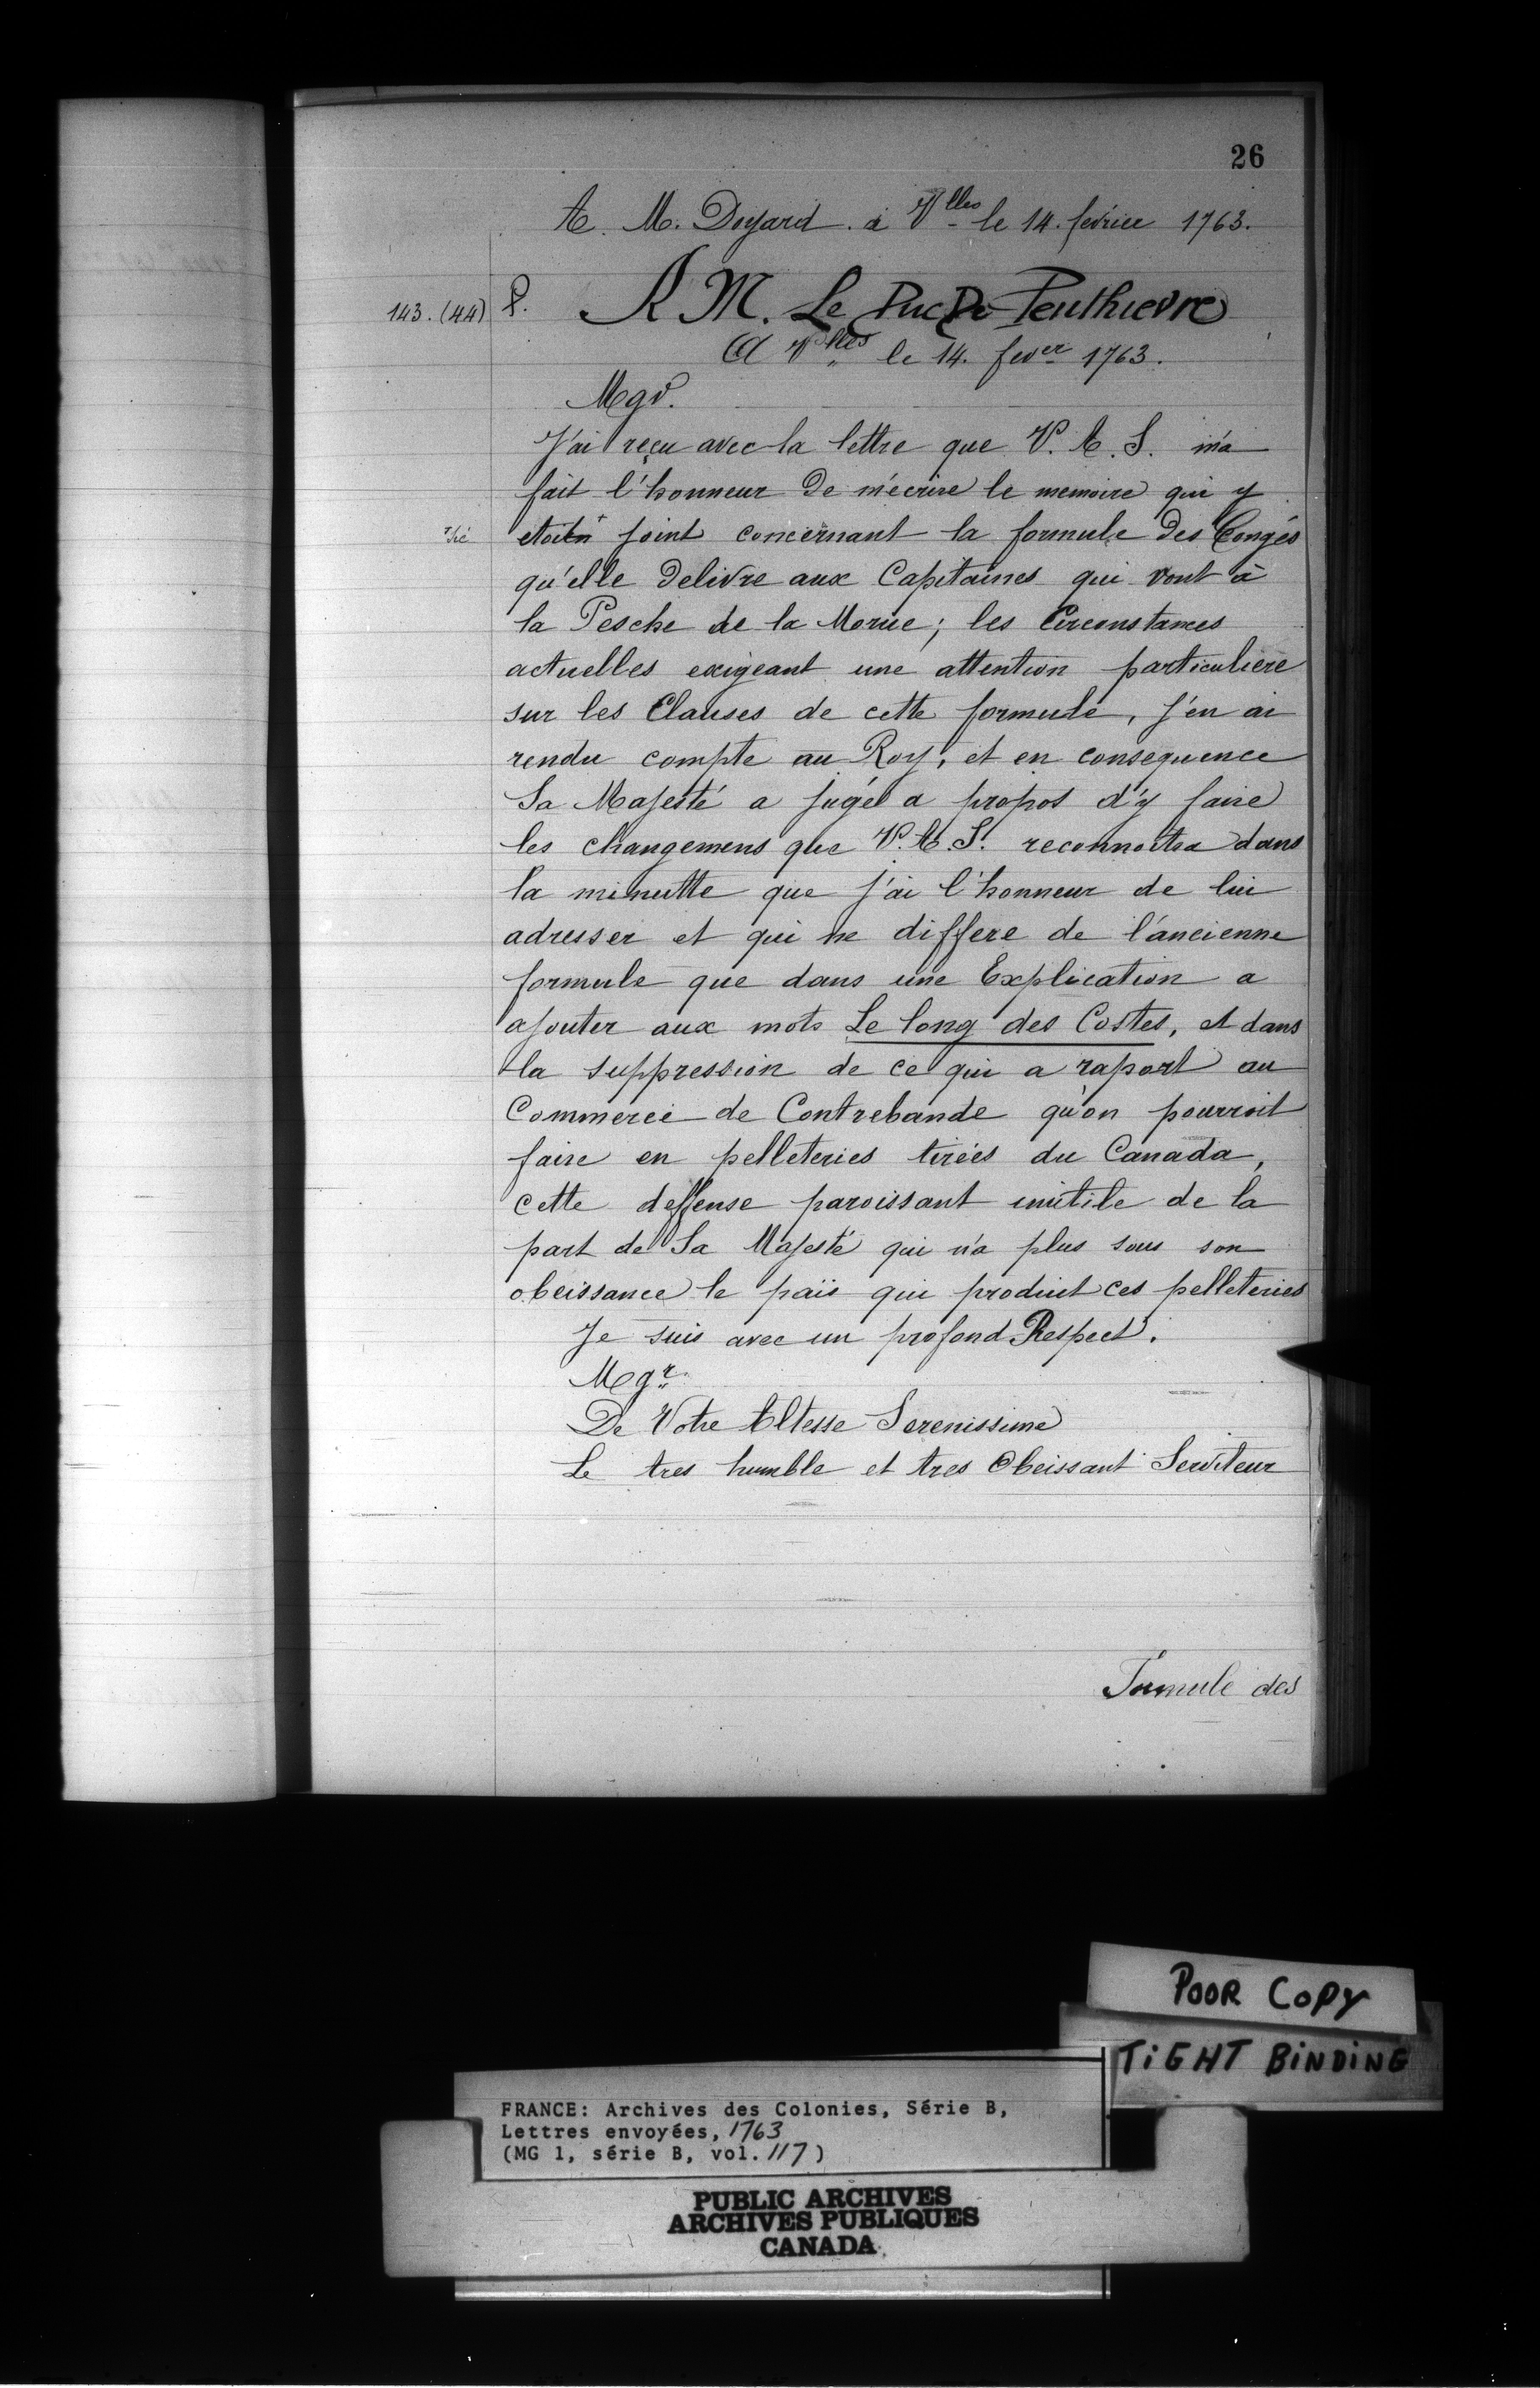 26
A. M. Doyard. à Vlles le 14. février 1763.
143. (44) P. A M. Le Duc De Penthievre
A Vlles le 14. fever 1763.
Mgr.
J'ai reçu avec la lettre que V. A. S. m'a
fait l'honneur de m'écrire le memoire qui y
+sic etoitn+ joint concernant la formule des Congés
qu'elle delivre aux Capitaines qui vont à
la Pesche de la Morue; les Circonstances
actuelles exigeant une attention particuliere
sur les Clauses de cette formule, j'en ai
rendu compte au Roy, et en consequence
Sa Majesté a jugé a propos d'y faire
les changemens que V. A. S. reconnoitra dans
la minutte que j'ai l'honneur de lui
adresser et qui ne differe de l'ancienne
formule que dans une Explication a
ajouter aux mots Le long des Costes, et dans
la suppression de ce qui a raport au
Commerce de Contrebande qu'on pourroit
faire en pelleteries tirées du Canada,
cette deffense paroissant inutile de la
part de Sa Majesté qui n'a plus sous son
obeissance le païs qui produit ces pelleteries
Je suis avec un profond Respect.
Mgr.
De Votre Altesse Serenissime
Le tres humble et tres Obeissant Serviteur
Formule des
POOR COPY
TIGHT BINDING
FRANCE: Archives des Colonies, Série B,
Lettres envoyées, 1763
(MG 1, série B, vol. 117)
PUBLIC ARCHIVES
ARCHIVES PUBLIQUES
CANADA